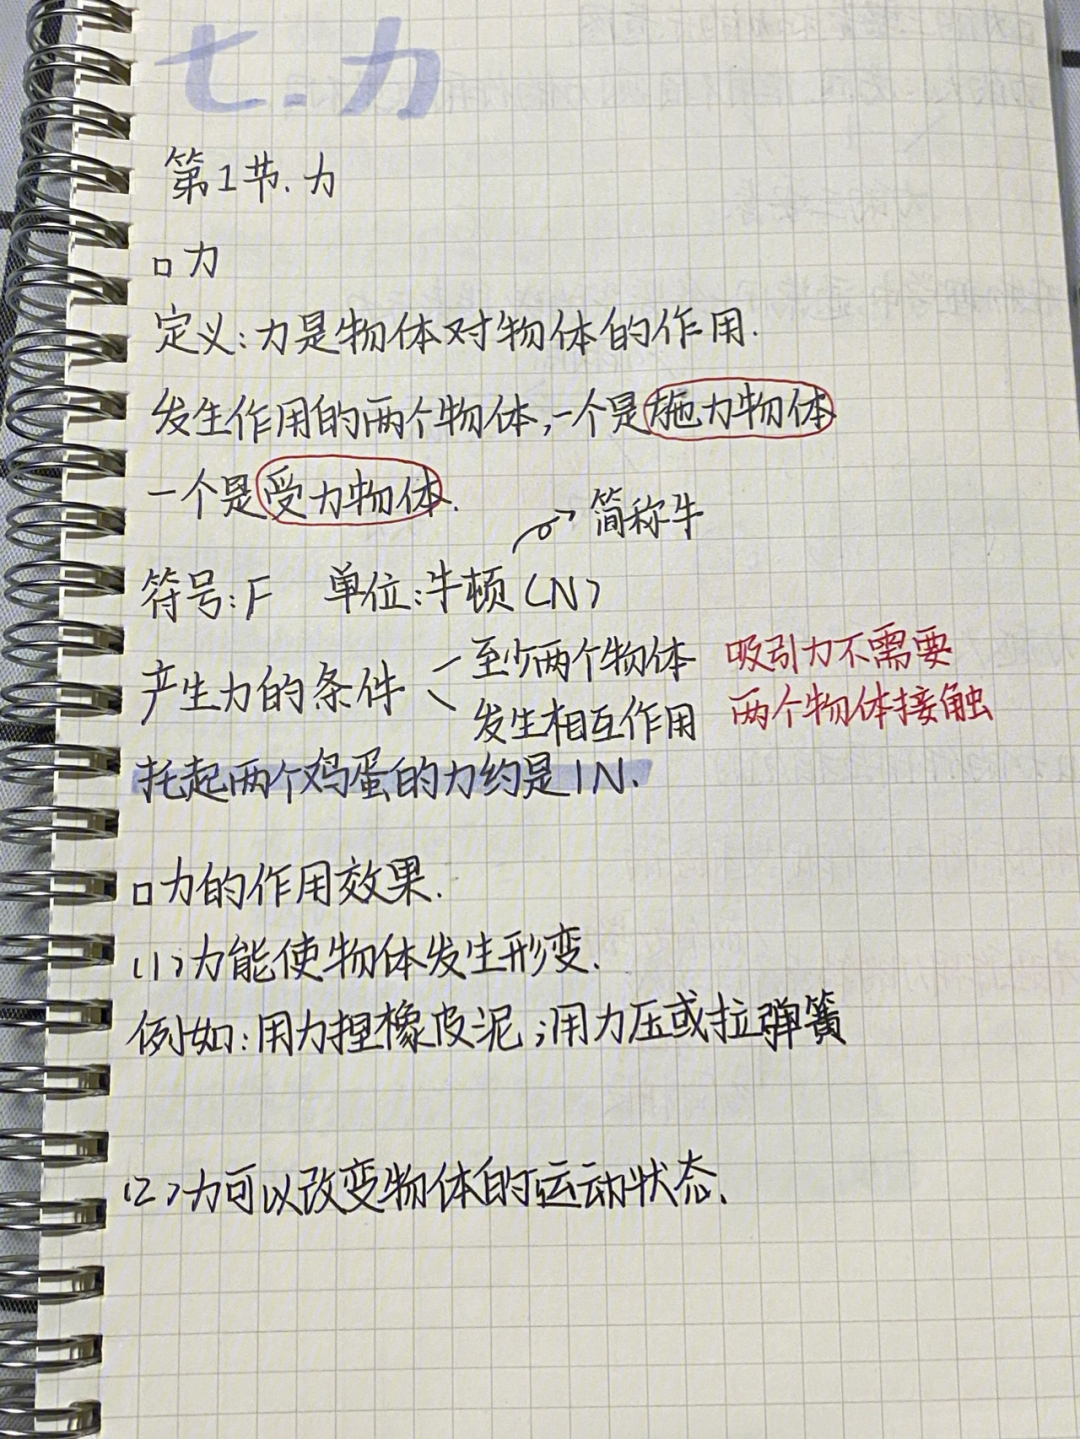 七.力
第1节.力
□力
定义:力是物体对物体的作用.
发生作用的两个物体,一个是施力物体
一个是受力物体.
简称牛
符号:F 单位:牛顿(N)
产生力的条件
至少两个物体
发生相互作用
吸引力不需要
两个物体接触
托起两个鸡蛋的力约是1N.
□力的作用效果.
(1)力能使物体发生形变.
例如:用力捏橡皮泥;用力压或拉弹簧
(2)力可以改变物体的运动状态.